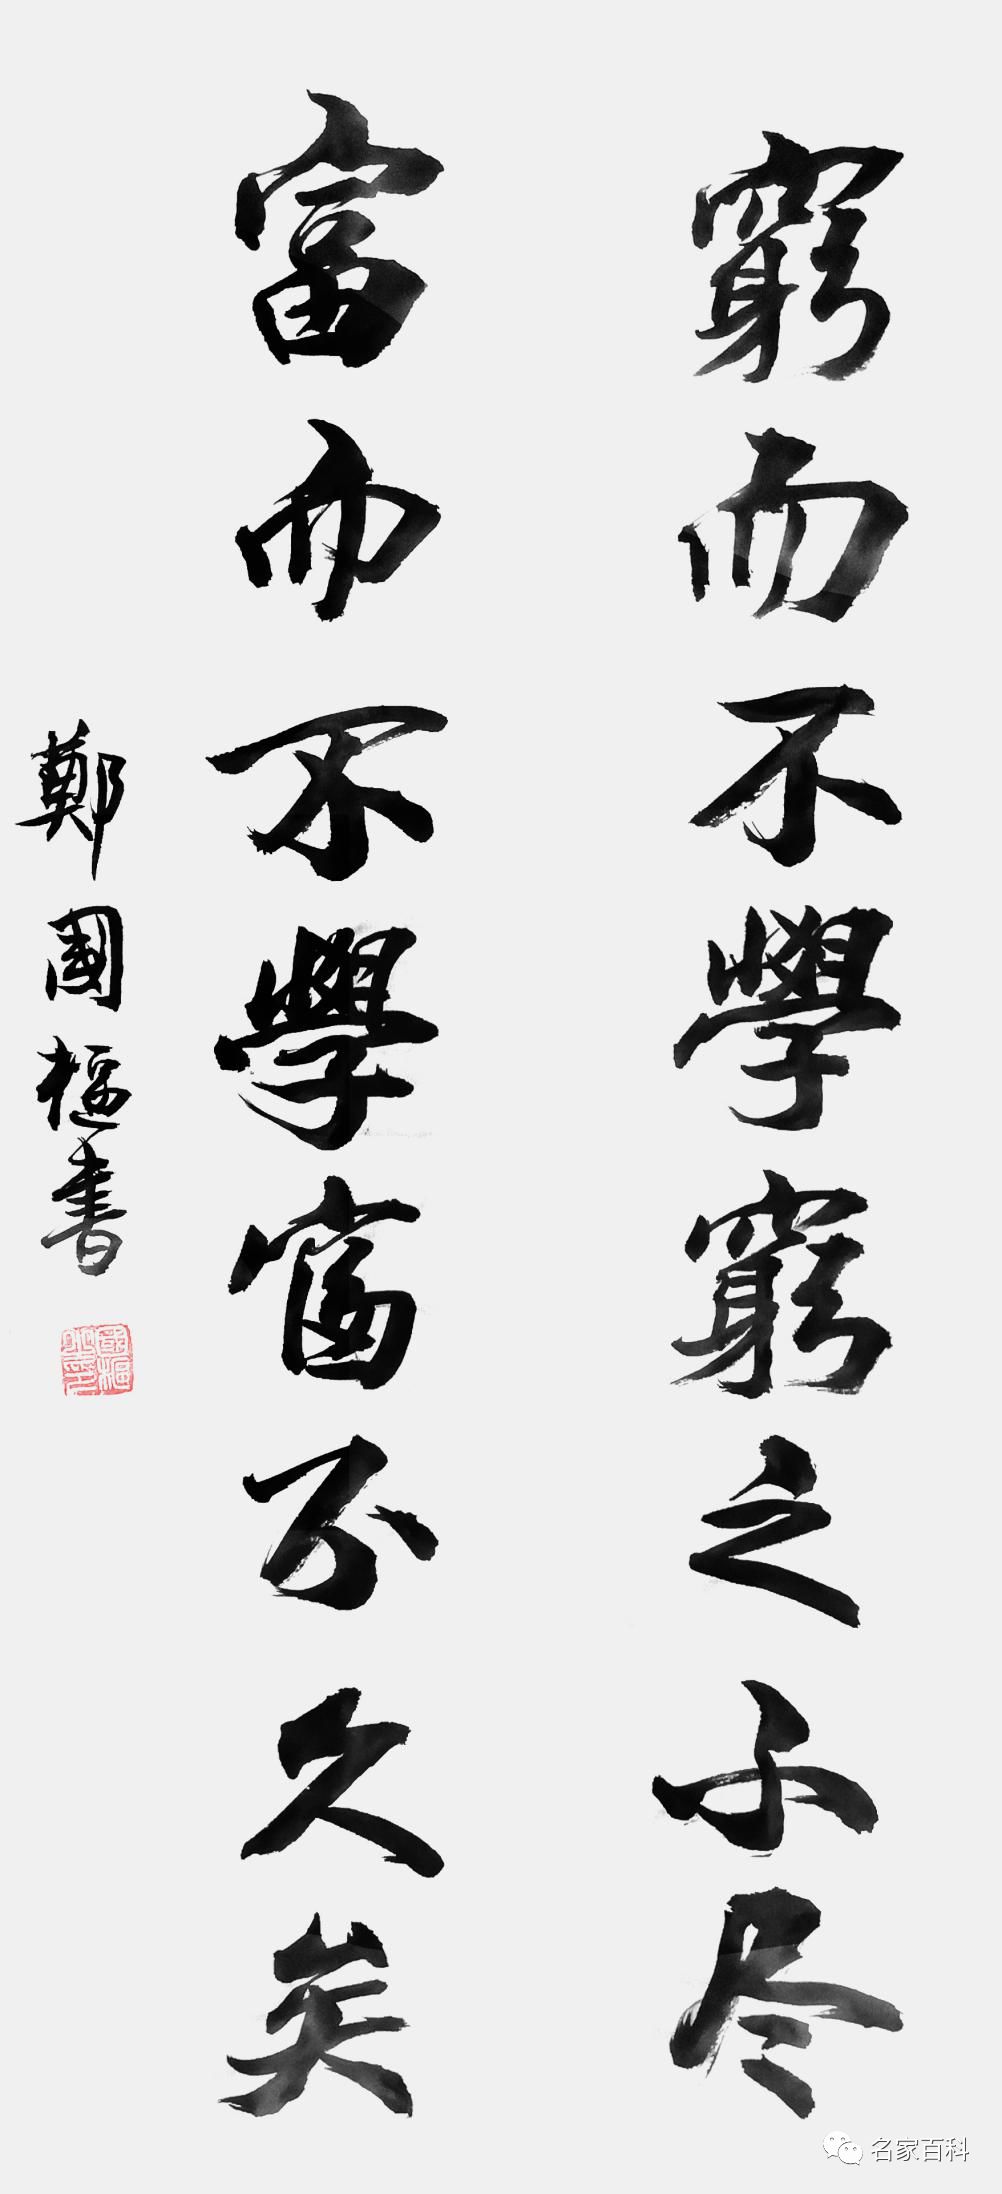 窮而不學窮之不尽
富而不學富不久矣
鄭國樞書
名家百科